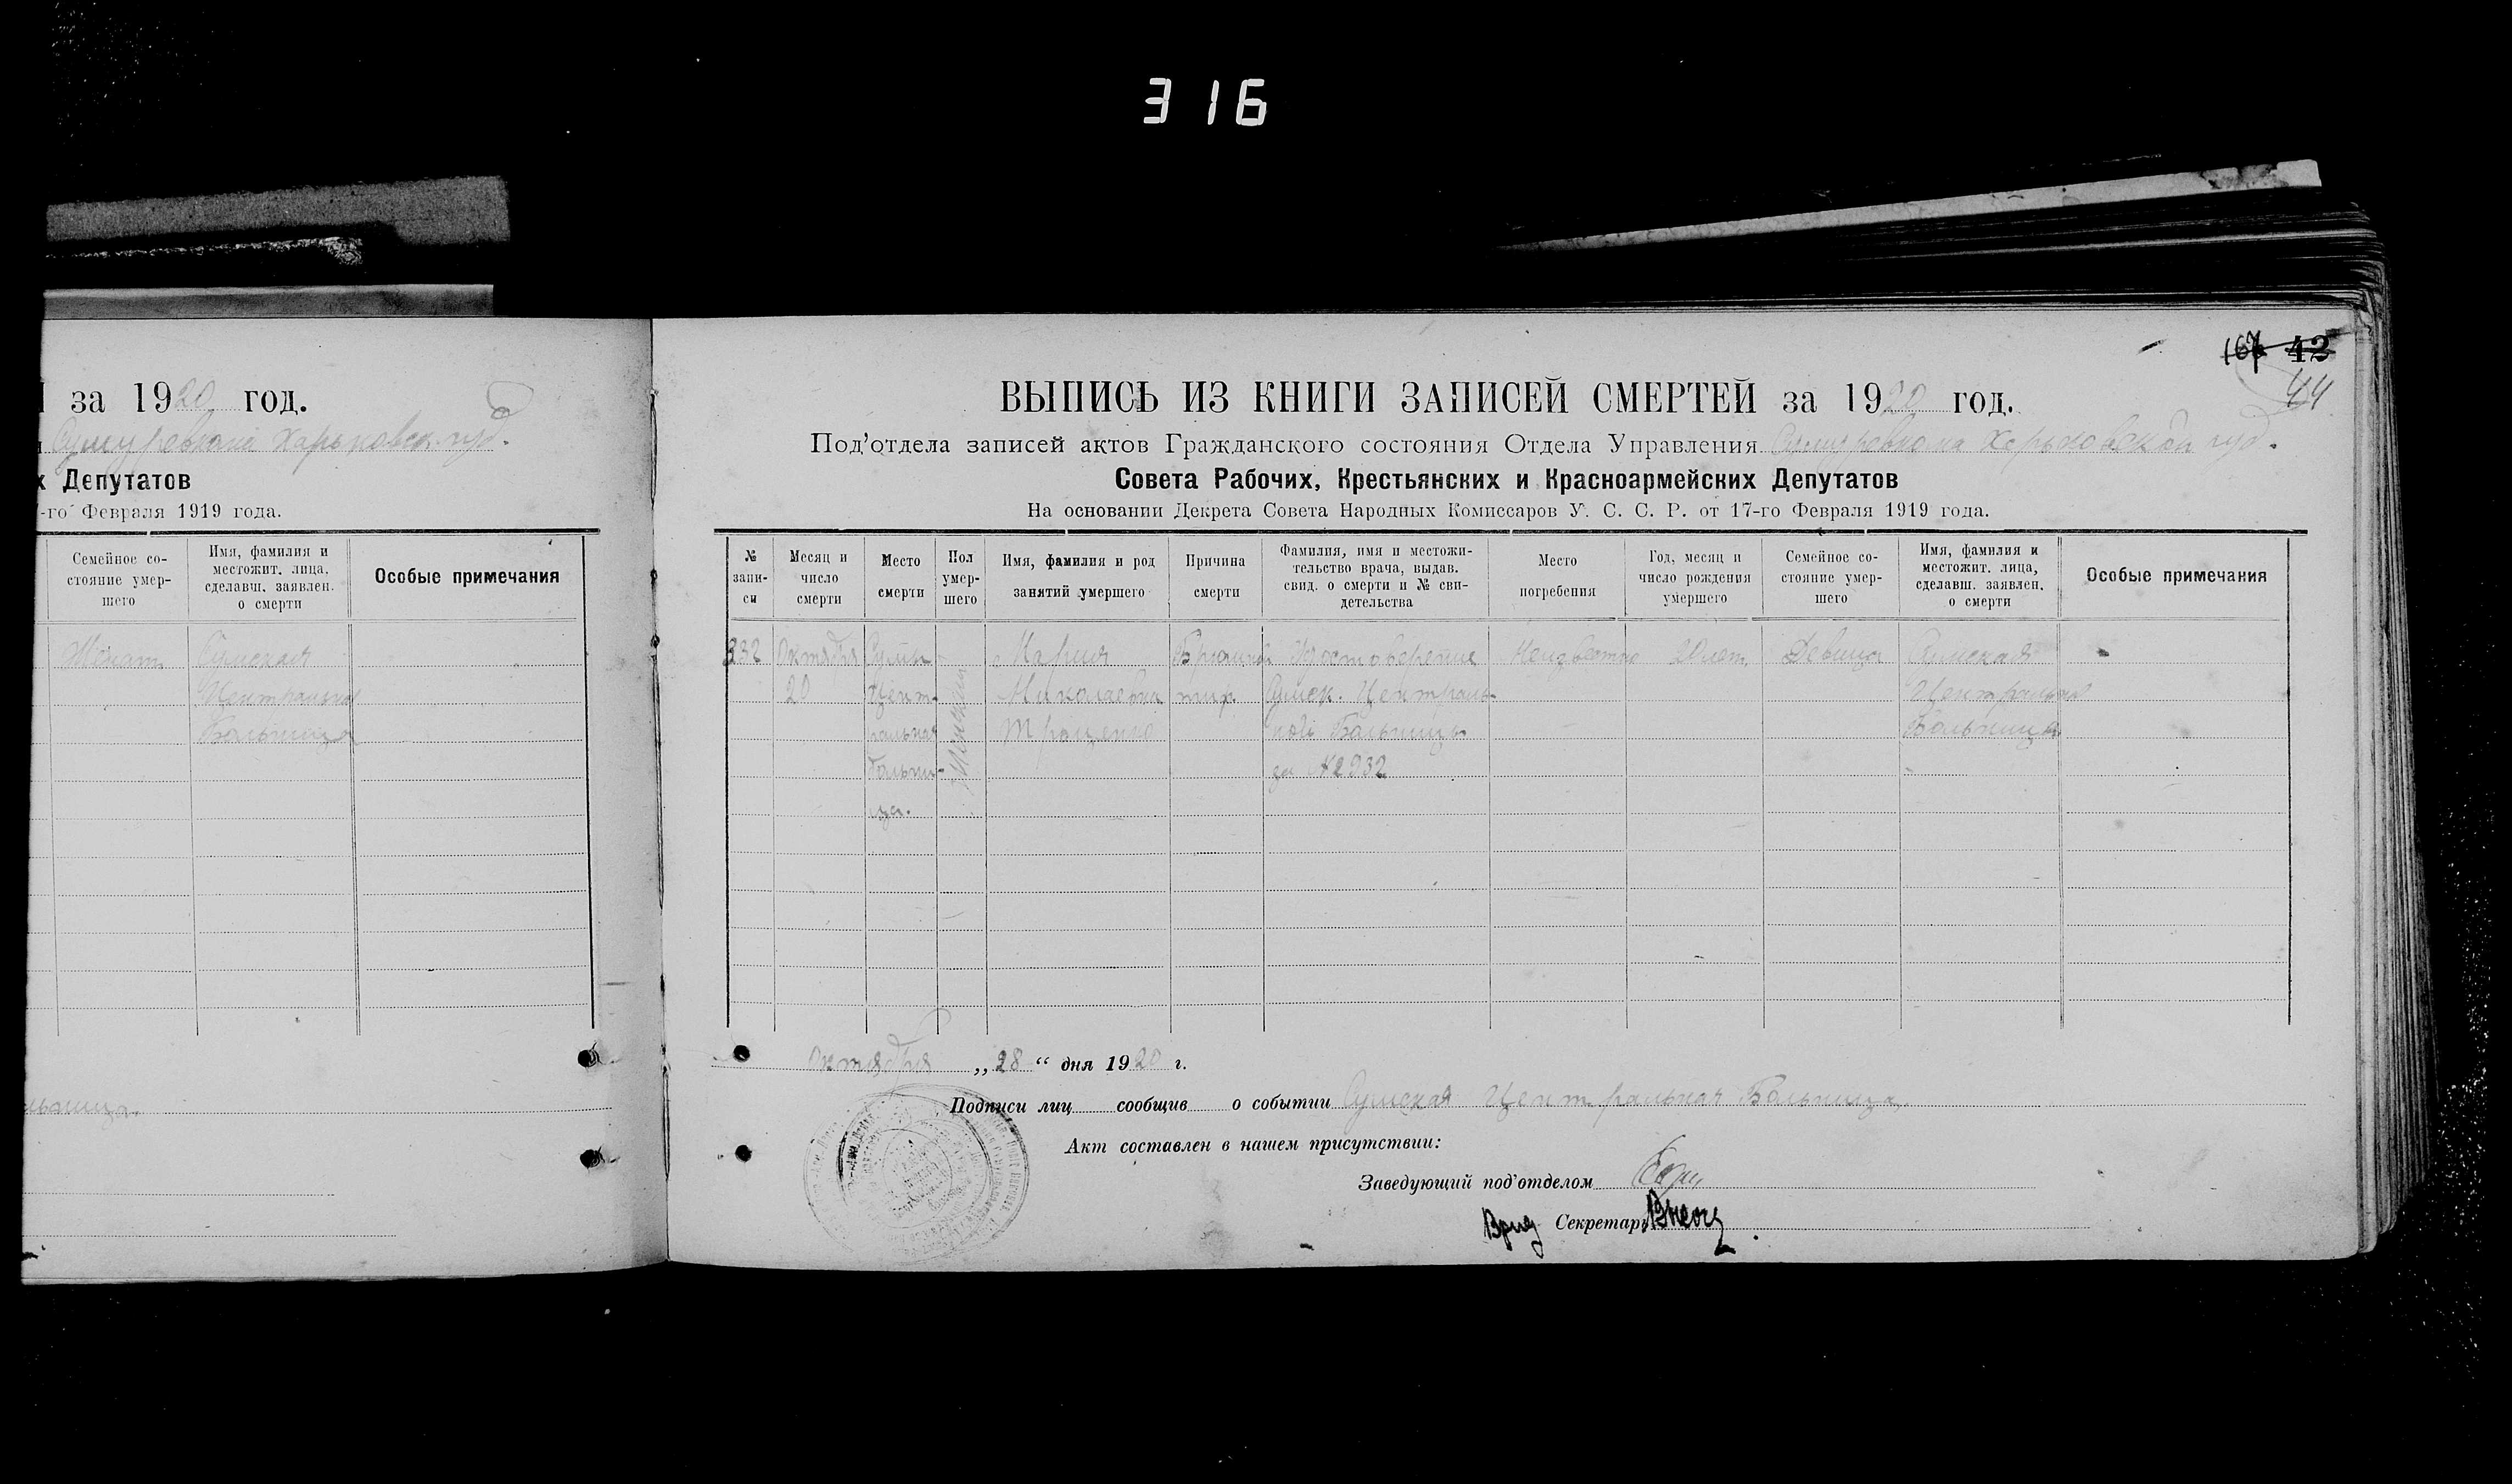 316
за 1920 год.
Харьковск. губ.
Депутатов
-го Февраля 1919 года.
Семейное со-
стояние умер-
шего
Имя, фамилия и
местожит. лица,
сделавш. заявлен.
о смерти
Особые примечания
Женат
Сумская
Центральная
Больница
льница.
167 42
44
ВЫПИСЬ ИЗ КНИГИ ЗАПИСЕЙ СМЕРТЕЙ за 1920 год.
Под'отдела записей актов Гражданского состояния Отдела Управления Сумуревкома Харьковской губ.
Совета Рабочих, Крестьянских и Красноармейских Депутатов
На основании Декрета Совета Народных Комиссаров У. С. С. Р. от 17-го Февраля 1919 года.
№
запи-
си
Месяц и
число
смерти
Место
смерти
Пол
умер-
шего
Имя, фамилия и род
занятий умершего
Причина
смерти
Фамилия, имя и местожи-
тельство врача, выдав.
свид. о смерти и № сви-
детельства
Место
погребения
Год, месяц и
число рождения
умершего
Семейное со-
стояние умер-
шего
Имя, фамилия и
местожит. лица,
сделавш. заявлен.
о смерти
Особые примечания
332
Октября
20
Сумы
Цент-
ральная
больни-
ца.
Женский
Мария
Николаевна
Троценко
Брюшной
тиф.
Удостоверение
Сумск. Централь-
ной Больницы
за №2932
Неизвестно
20 лет
Девица
Сумская
Центральная
Больница
Октября „28“ дня 1920 г.
Подписи лиц сообщив о событии Сумская Центральная Больница.
Акт составлен в нашем присутствии:
Заведующий под'отделом
Врид Секретарь